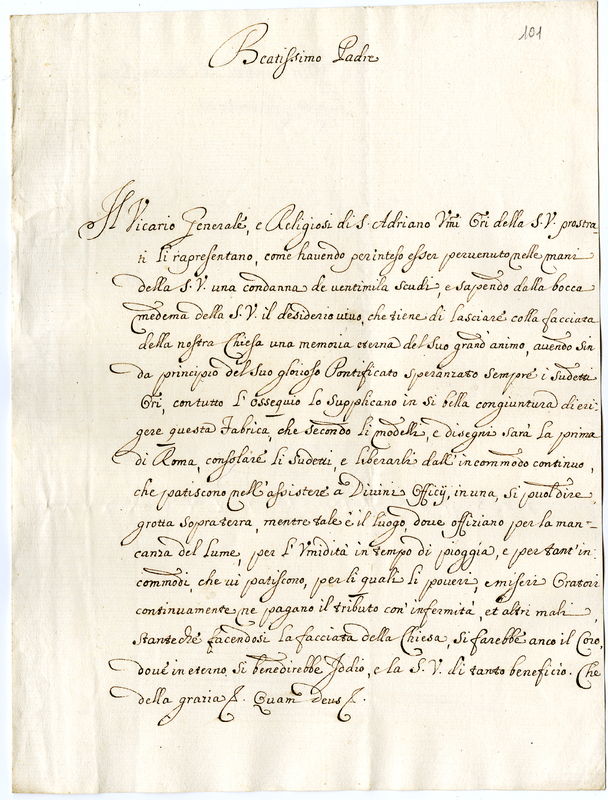 101
Beatissimo Padre
Il Vicario Generale, e Religiosi di S. Adriano Vmi Ori della S.V. prostra-
ti Li rapresentano, come havendo perinteso esser pervenuto nelle mani
della S.V. una condanna de ventimila scudi, e sapendo dalla bocca
medema della S.V. il desiderio vivo, che tiene di lasciare colla facciata
della nostra Chiesa una memoria eterna del suo grand'animo, avendo sin
da principio del suo glorioso Pontificato speranzato sempre i sudetti
Ori, con tutto l'ossequio lo supplicano in si bella congiuntura di eri-
gere questa fabrica, che secondo li modelli, e disegni sarà la prima
di Roma, consolare li sudetti, e liberarli dall'incommodo continuo,
che patiscono nell'assistere à Divini Officij, in una, si puol dire,
grotta sopraterra, mentre tale è il luogo, dove offiziano per la man-
canza del lume, per l'Vmidità in tempo di pioggia, e per tant'in
commodi, che vi patiscono, per li quali li poveri, e miseri Oratori
continuamente ne pagano il tributo con infermità, et altri mali,
stanteche facendosi la facciata della Chiesa, si farebbe anco il Coro,
dove in eterno si benedirebbe Iddio, e la S.V. di tanto beneficio. Che
della grazia &. Quam Deus &.